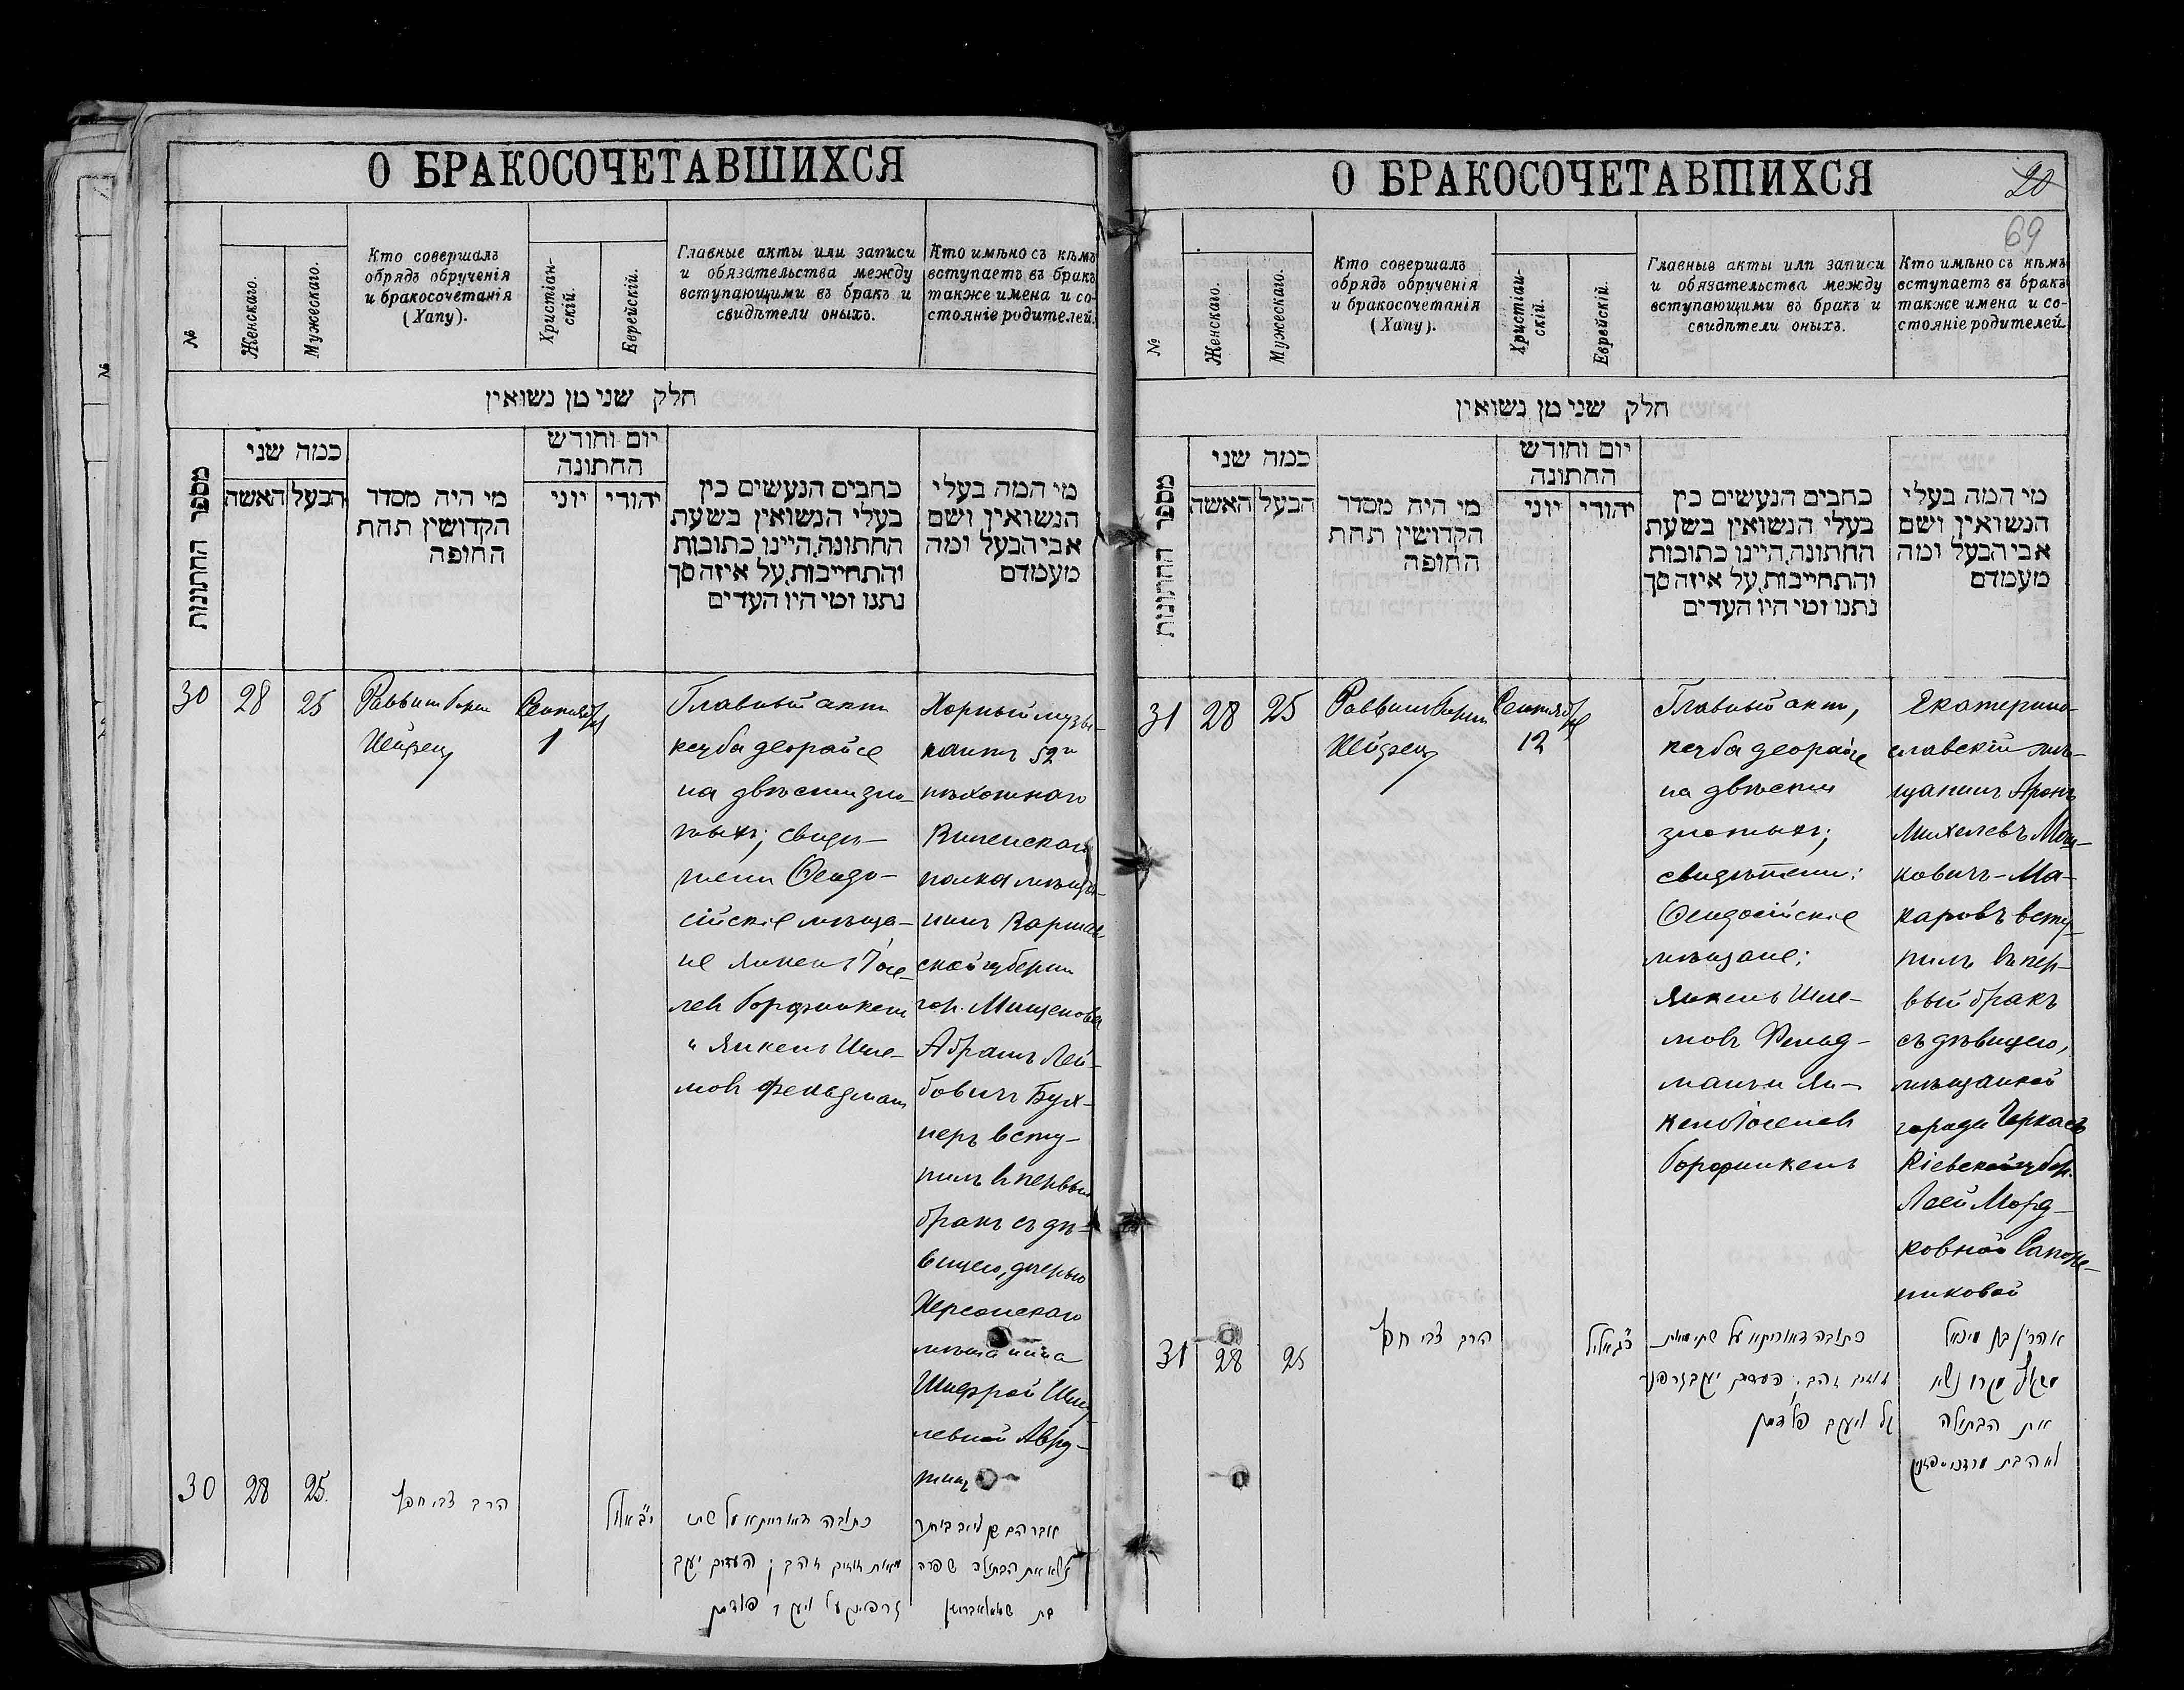 О БРАКОСОЧЕТАВШИХСЯ
№
Женскаго.
Мужескаго.
Кто совершалъ
обрядъ обрученія
и бракосочетанія
(Хапу).
Христіан-
скій.
Еврейскій.
Главные акты или записи
и обязательства между
вступающими въ бракъ и
свидѣтели оныхъ.
Кто имѣно съ кѣмъ
вступаетъ въ бракъ
также имена и со-
стояніе родителей.
חלק שני מן נשואין
מספר החתונות
כמה שני
האשה
הבעל
מי היה מסדר
הקדושין תחת
החופה
יום וחודש
החתונה
יוני
יהודי
כתבים הנעשים בין
בעלי הנשואין בשעת
החתונה, היינו כתובות
והתחייבות, על איזה סך
נתנו ומי היו העדים
מי המה בעלי
הנשואין ושם
אבי הבעל ומה
מעמדם
30
28
25
Раввинъ
Хейфец
Сентября
1
Главный актъ
кецба деорайсе
на двѣсти зло-
тыхъ; свидѣ-
тели Ѳеодо-
сійскіе мѣща-
не Янкель Іосе-
левъ Борфинкель
и Янкель Шле-
мовъ Фельдманъ
Хорный музы-
кантъ 52го
пѣхотнаго
Виленскаго
полка мѣща-
нинъ Варшав-
ской губерніи
гор. Мищенова
Абрамъ Лей-
бовичъ Бух-
неръ всту-
пилъ въ первый
бракъ съ дѣ-
вицею, дочерью
Херсонскаго
мѣщанина
Шифрой Шму-
левной
30
28
25.
הרב צבי חפץ
י״ב אלול
כתובה דאורייתא על שתי
מאות זוזים זהב; העדים יעקב
אברהם בן ליב בוחנר
נשא את הבתולה שפרה
О БРАКОСОЧЕТАВШИХСЯ
20
69
№
Женскаго.
Мужескаго.
Кто совершалъ
обрядъ обрученія
и бракосочетанія
(Хапу).
Христіан-
скій.
Еврейскій.
Главные акты или записи
и обязательства между
вступающими въ бракъ и
свидѣтели оныхъ.
Кто имѣно съ кѣмъ
вступаетъ въ бракъ
также имена и со-
стояніе родителей.
חלק שני מן נשואין
מספר החתונות
כמה שני
האשה
הבעל
מי היה מסדר
הקדושין תחת
החופה
יום וחודש
החתונה
יוני
יהודי
כתבים הנעשים בין
בעלי הנשואין בשעת
החתונה, היינו כתובות
והתחייבות, על איזה סך
נתנו ומי היו העדים
מי המה בעלי
הנשואין ושם
אבי הבעל ומה
מעמדם
31
28
25
Раввинъ
Хейфец
Сентября
12
Главный актъ,
кецба деорайсе
на двѣсти
злотыхъ;
свидѣтели:
Ѳеодосійскіе
мѣщане:
Янкель Шле-
мовъ Фельд-
манъ и Ян-
кель Іоселевъ
Борфинкель
Екатерино-
славскій мѣ-
щанинъ Аронъ
Михелевъ Мош-
ковичъ-Ма-
каровъ всту-
пилъ въ пер-
вый бракъ
съ дѣвицею,
мѣщанкой
города Черкасъ
Кіевской губер.
Леей Морд-
ковной Сапож-
никовой
31
28
25
הרב צבי חפץ
כ״ג אלול
כתובה דאורייתא על שתי מאות
זוזים זהב; העדים
נשא
את הבתולה
לאה בת